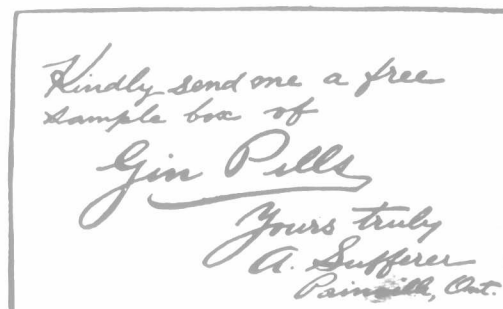 Kindly send me a free
sample box of
Gin Pills
Yours truly
A. Sufferer
Painville, Ont.